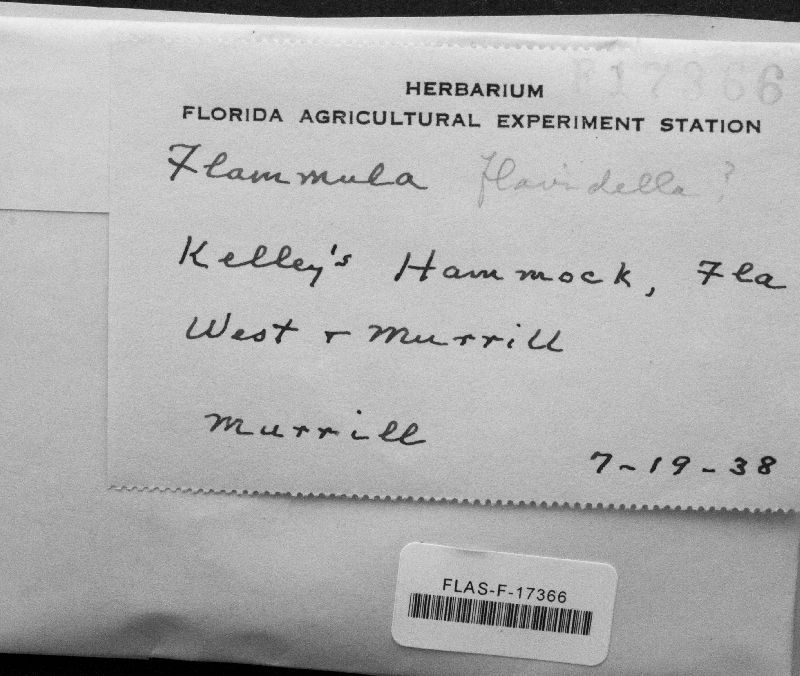 F17366
HERBARIUM
FLORIDA AGRICULTURAL EXPERIMENT STATION
Flammula flavidella ?
Kelley's Hammock, Fla
West & Murrill
Murrill
7-19-38
FLAS-F-17366